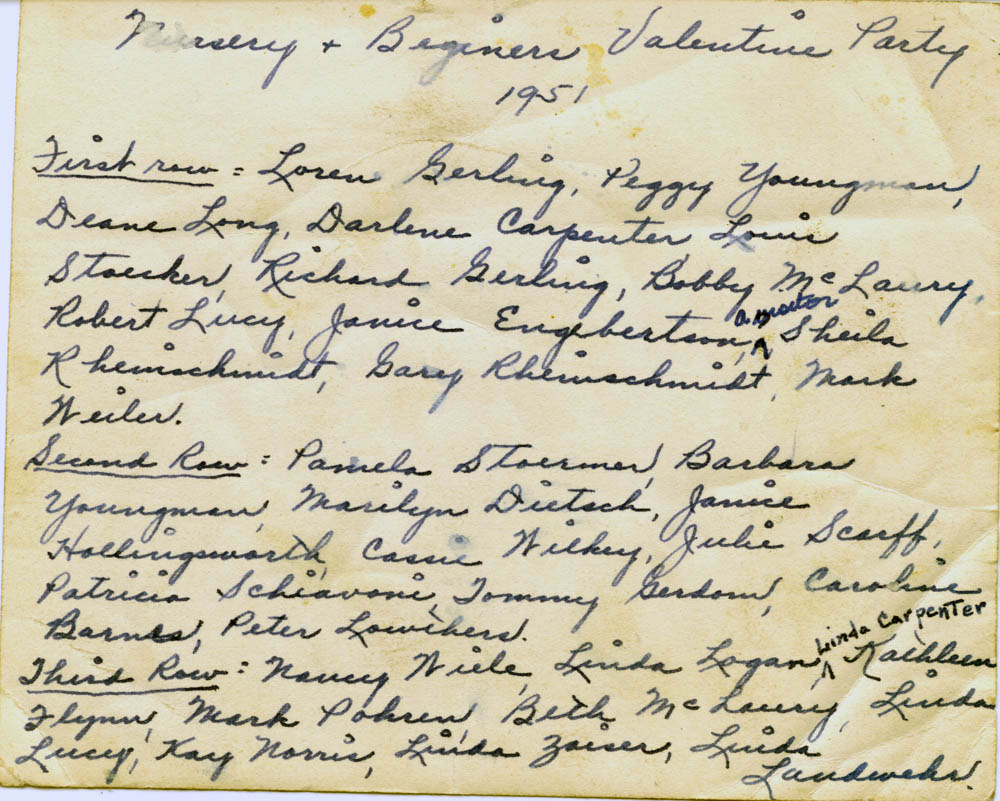 Nursery + Beginers Valentine Party
1951
First row = Loren Gerling, Peggy Youngman,
Deane Long, Darlene Carpenter, Louis
Stoecker, Richard Gerling, Bobby McLaury,
Robert Lucy, Janice Engebertson, a visitor Sheila
Rheinschmidt, Gary Rheinschmidt, Mark
Weiler.
Second Row: Pamela Stoermer, Barbara
Youngman, Marilyn Dietsch, Janice
Hollingsworth, Cassie Wilkey, Julie Scarff,
Patricia Schiavoni, Tommy Gerdom, Caroline
Barnes, Peter Lowthers.
Third Row: Nancy Wiele, Linda Logan, Linda Carpenter Kathleen
Flynn, Mark Pohren, Beth McLaury, Linda
Lucy, Kay Norris, Linda Zaiser, Linda
Landwehr.